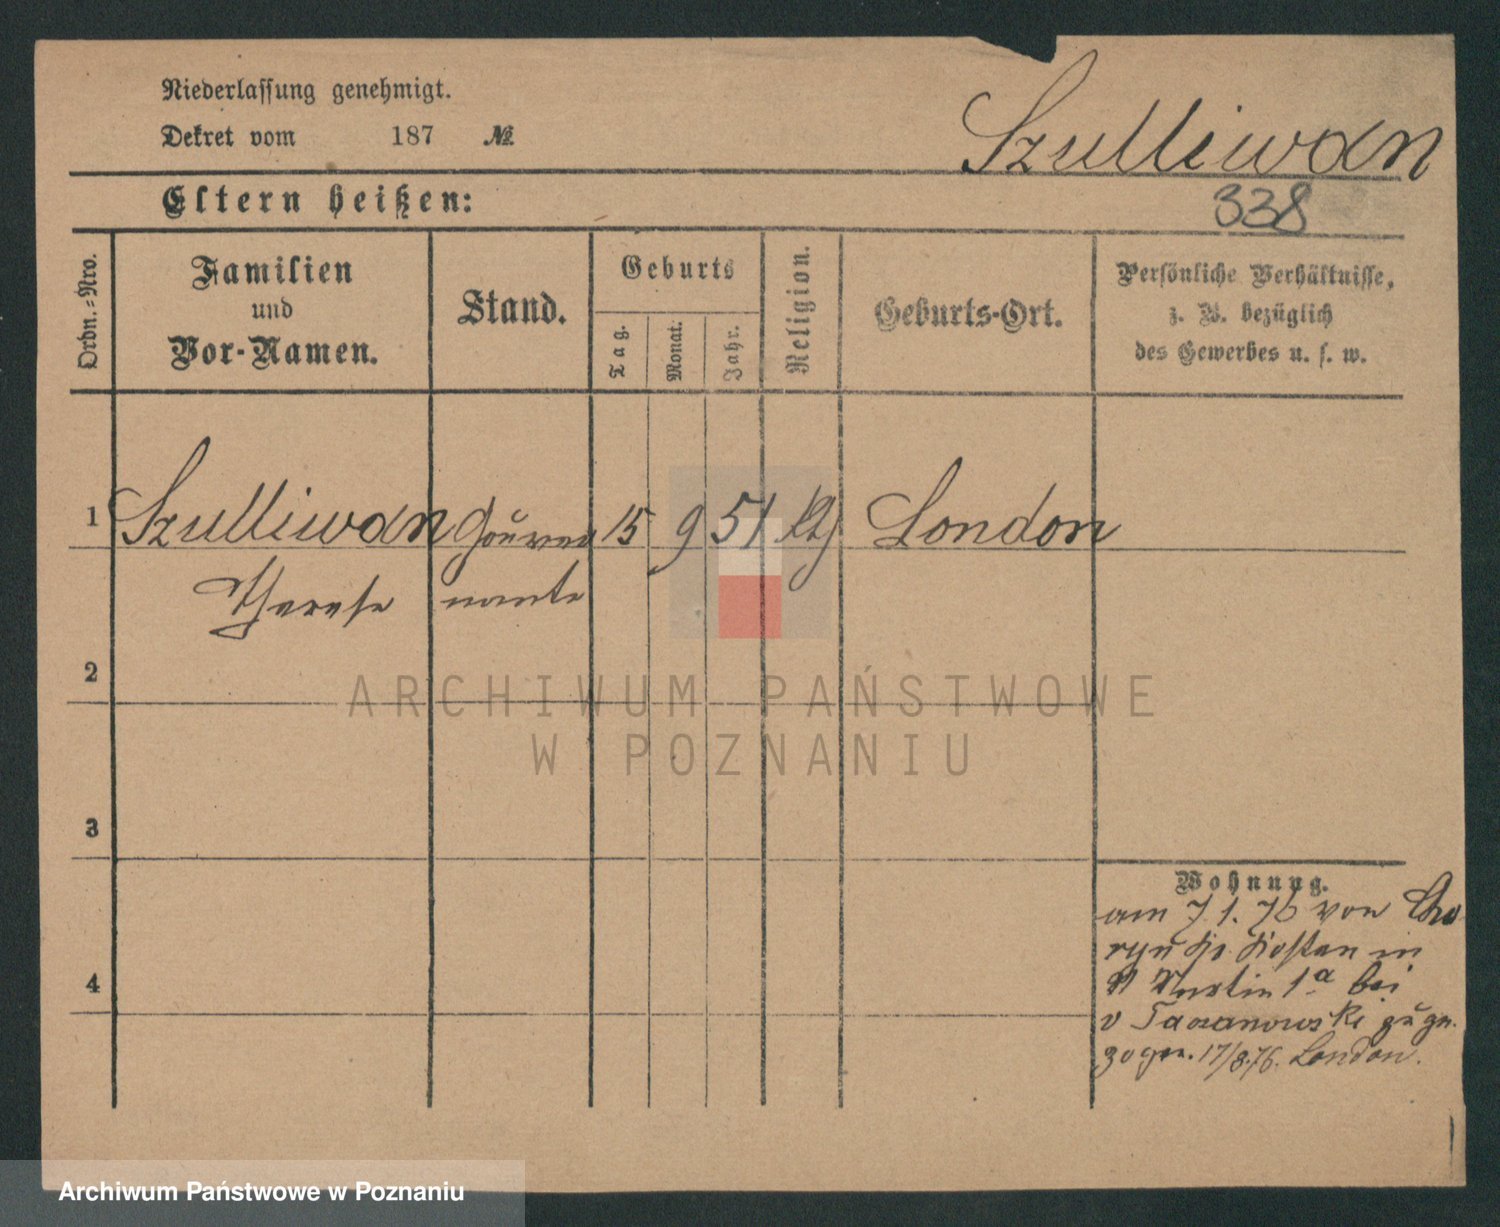 Niederlassung genehmigt.
Dekret vom 187 №
Szulliwan
Eltern heißen:
338
Ordn.=Nro.
Familien
und
Vor-Namen.
Stand.
Geburts
Tag.
Monat.
Jahr.
Religion.
Geburts-Ort.
Persönliche Verhältnisse,
z. B. bezüglich
des Gewerbes u. s. w.
1 Szulliwan Gouver 15 9 51 kth London
Therese nante
2
ARCHIWUM PAŃSTWOWE
W POZNANIU
3
Wohnung.
am 7.1.76 von Cho
ryn Kr. Kosten in
4
St Martin 1a bei
v Taczanowski zuge
zogen. 17/8.76. London.
Archiwum Państwowe w Poznaniu